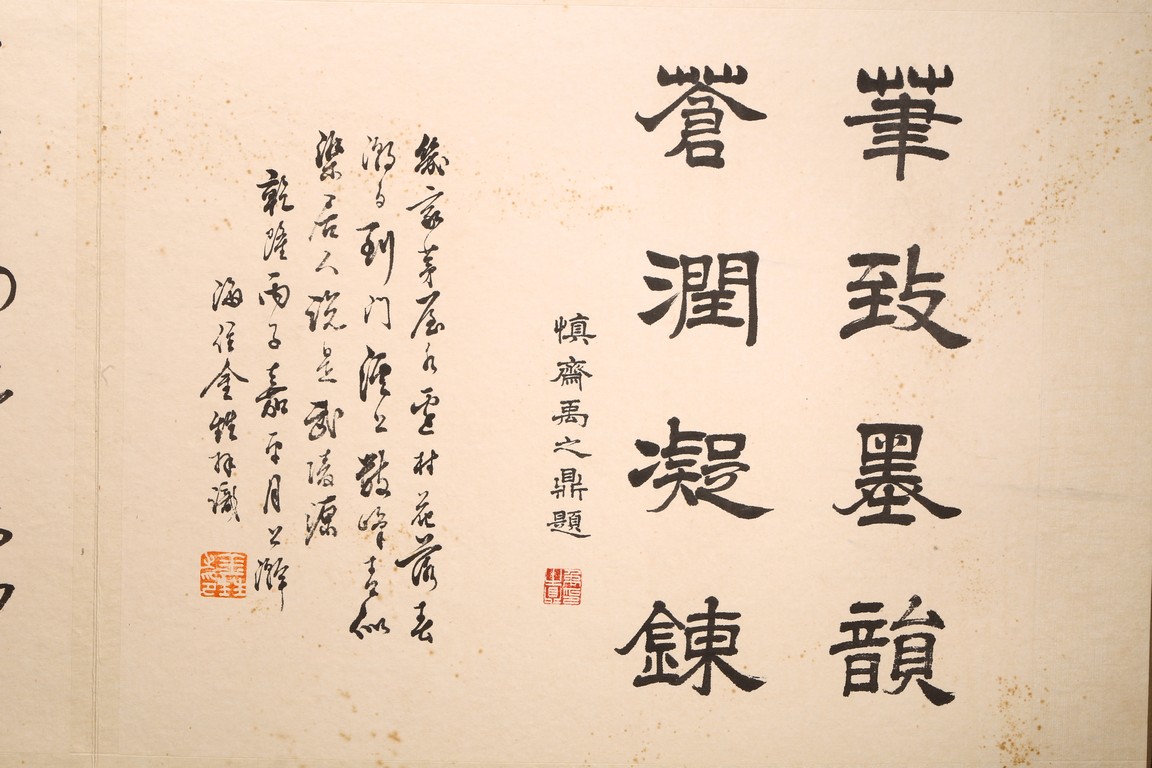 筆致墨韻
蒼潤凝鍊
慎齋禹之鼎題
幾家茅屋水邊村花落春
潮日到門溪上數峰青似
染居人說是武陵源
乾隆丙子嘉平月上澣
海住金甡拜識